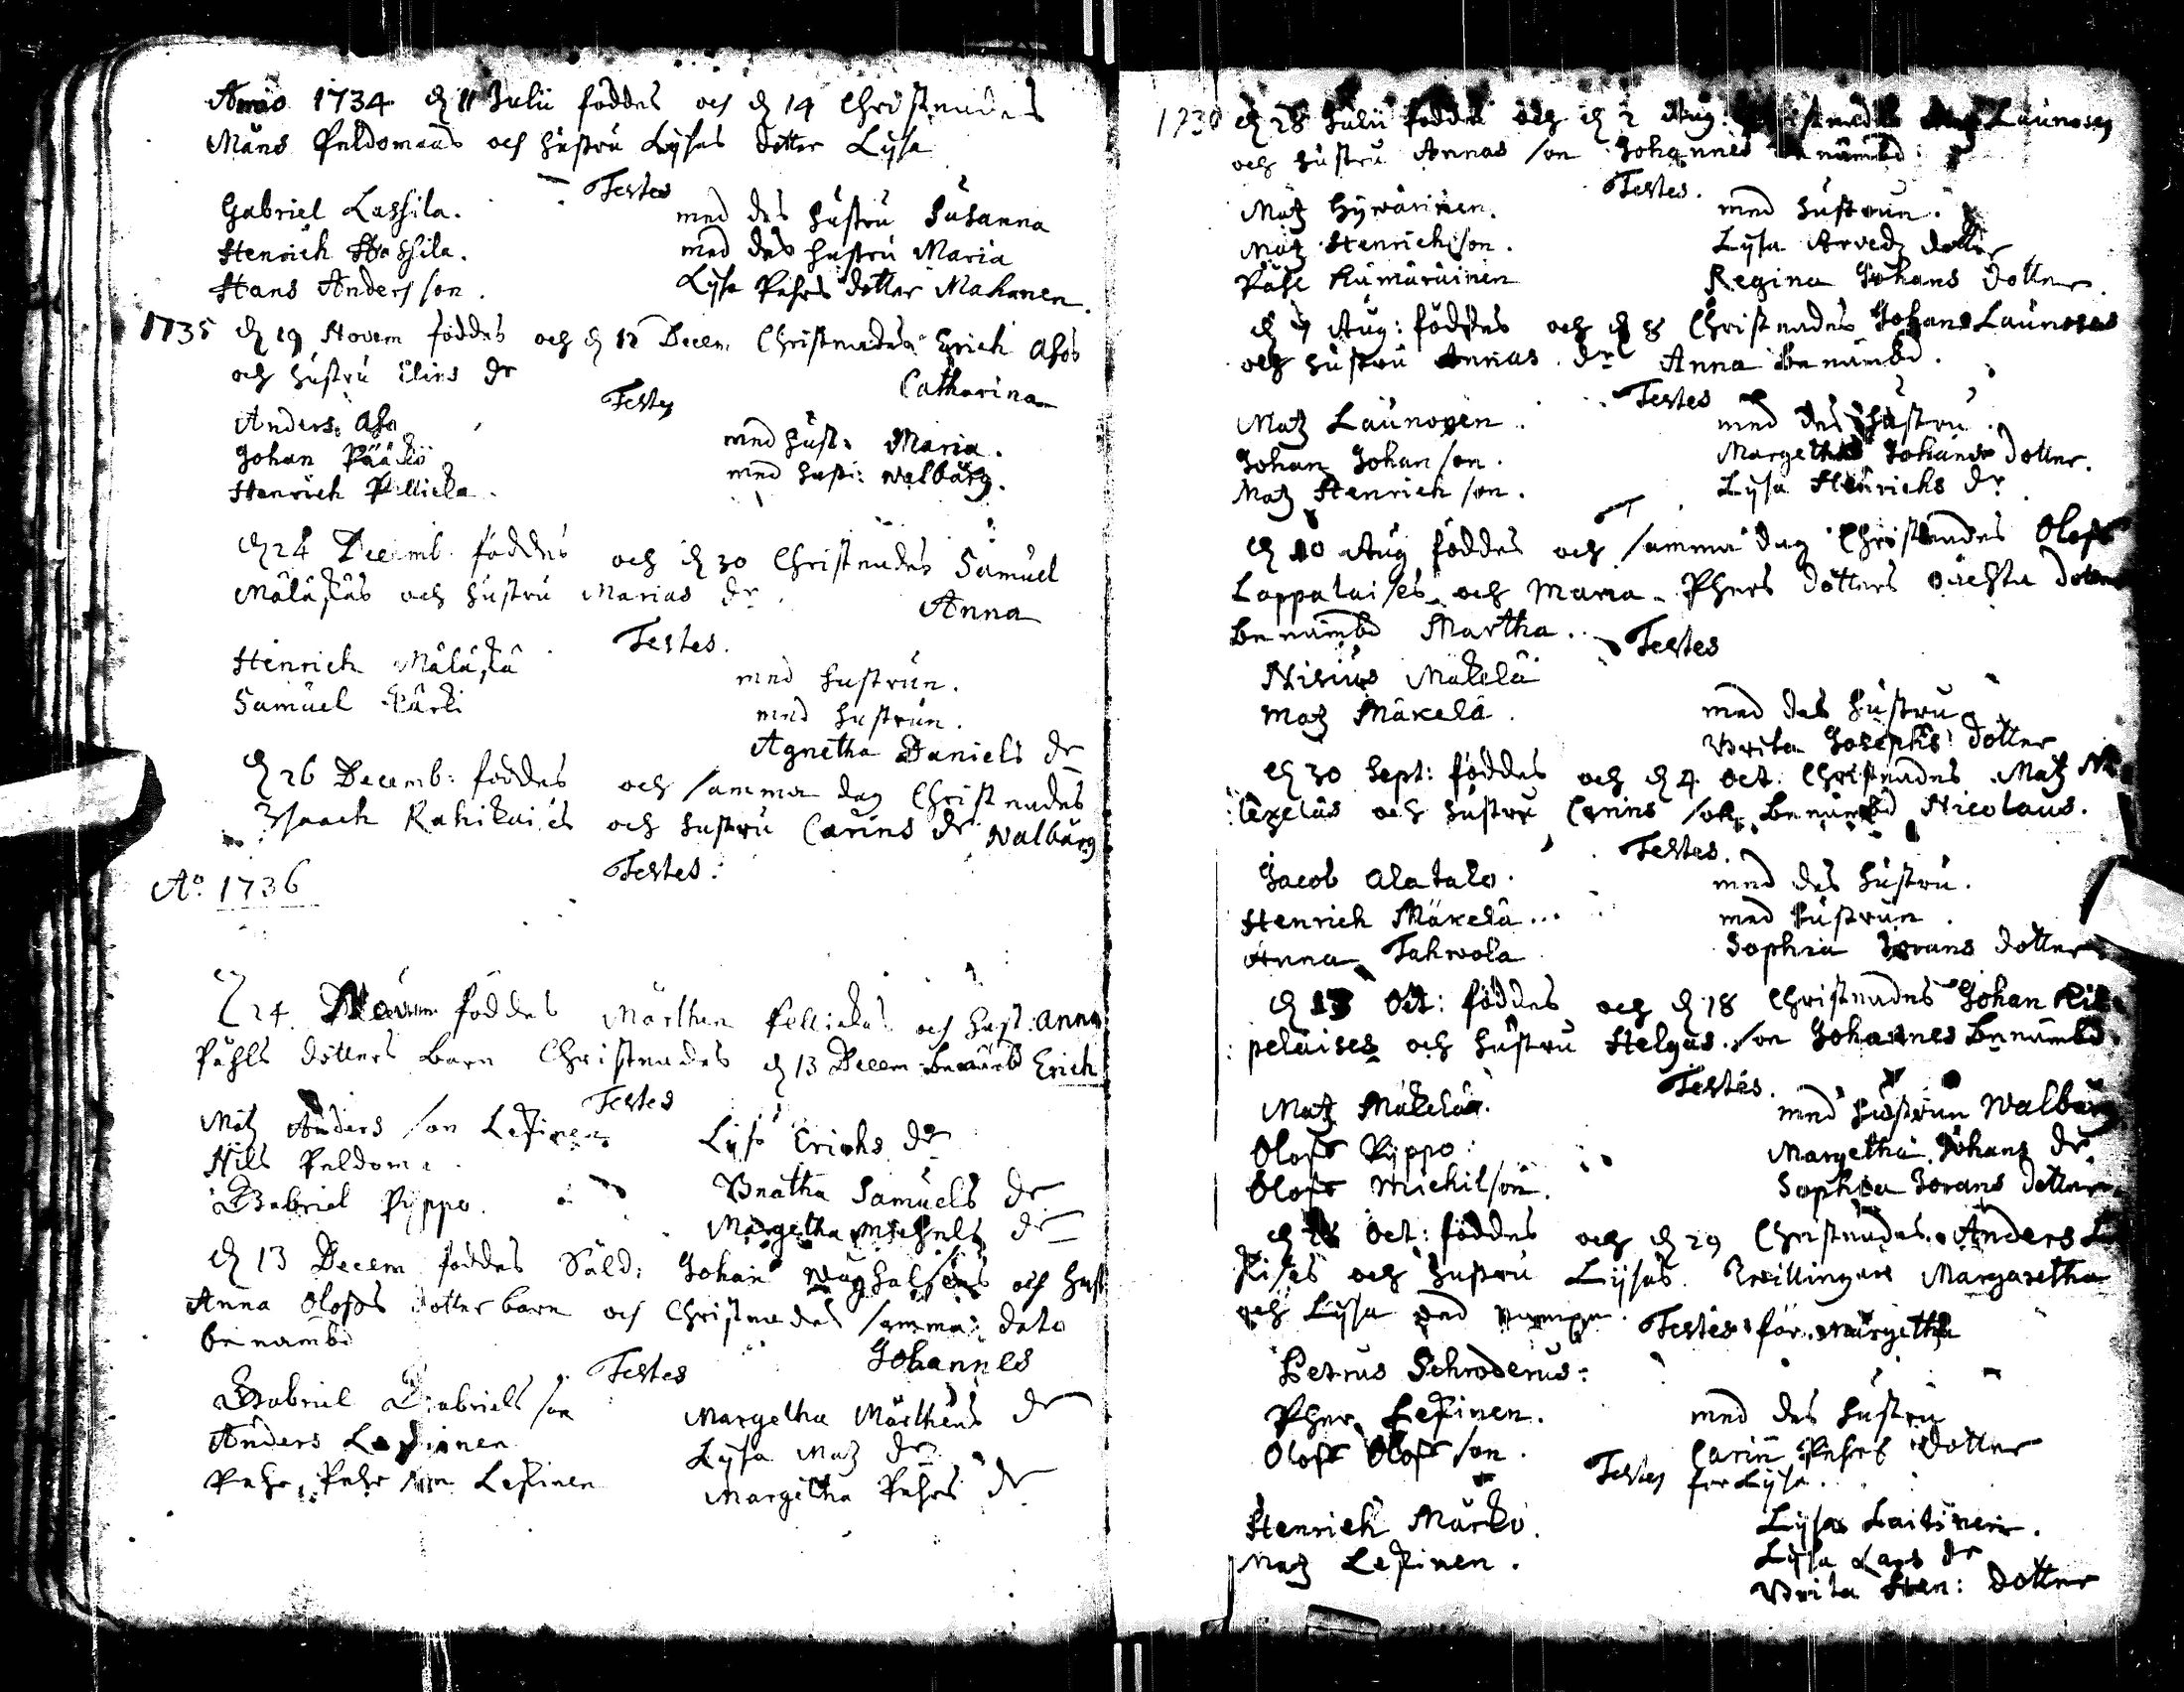 Anno 1734 d 11 Julii föddes och d 14 Christnades
Måns Peldomaas och hustru Lysas dotter Lysa
Testes
Gabriel Lassila. med des hustru Susanna
Henrich Hassila. med des hustru Maria
Hans Anders son. Lysa Pehrs dotter Mahonen.
1735 d 19 Novem föddes och d 12 Decem Christnades Erich Ahos
och hustru Elins dr Catharina
Testes
Anders Aho med hust: Maria.
Johan Pääkö med hust: Walborg.
Henrich Pellicka.
d 24 Decemb föddes och d 30 Christnades Samuel
Mäläskäs och hustru Marias dr. Anna
Testes.
Henrich Mäläskä med hustrun.
Samuel Kärki med hustrun.
Agnetha Daniels dr
d 26 Decemb: föddes och samma dag Christnades
Isaach Rahikais och hustru Carins dr Walborg
Testes.
Ao. 1736
d 24 Novem föddes Mårthen Pellickas och hust: Anna
Påhls dotters barn Christnades d 13 Decem benämd Erich
Testes
Matz Anders son Leskinen Lysa Erichs dr
Nils Peldoma. Bratha Samuels dr
Gabriel Pyppo. Margetha Michels dr
d 13 Decem föddes Sold: Johan Waghalsens och hust
Anna Olofs dotter barn och Christnades samma dato
benämbd Johannes
Testes
Gabriel Gabriels son Margetha Mårthens dr
Anders Leskinen Lysa Matz dr
Pehr Pehr son Leskinen Margetha Pehrs dr
1736 d 28 Julii föddes och d 2 Aug: Launosen
och hustru Annas son Johannes benämbd
Testes.
Matz Hyvärinen. med hustrun.
Matz Henrichson. Lysa Arvedz dotter
Påhl Kämäräinen Regina Johans dotter.
d 7 Aug: föddes och d 8 Christnades Johans Launoses
och hustru Annas dr Anna benämbd.
Testes
Matz Launonen. med des hustru.
Johan Johan son. Margetha Johans dotter.
Matz Henrich son. Lysa Henrichs dr.
d 10 Aug föddes och samma dag Christnades Olofs
Lappalaises och Maria Phers dotters oächta dotter
benämbd Martha.
Testes
Nisius Mäkelä
Matz Mäkelä. med des hustru
Brita Josephs dotter
d 30 Sept: föddes och d 4 Oct. Christnades Matz
och hustru Carins son benämbd Nicolaus.
Testes.
Jacob Alatalo. med des hustru.
Henrich Mäkelä... med hustrun.
Anna Tahvola Sophia Jörans dotter
d 13 Oct: föddes och d 18 Christnades Johan
peläises och hustru Helgas son Johannes benämbd.
Testes.
Matz Mäkelä. med hustrun Walborg
Olofs Pyppo: Margetha Johans dr.
Olofs Michilson. Sophia Jörans dotter.
d 28 Oct: föddes och d 29 Christnades Anders
kises och hustru Lysas. Twillingar Margaretha
och Lysa
Testes för Margetha
Petrus Schroderus:
Pher Leskinen. med des hustru
Olofs Olofs son. Carin Pehrs dotter
Testes for Lysa.
Henrich Marko. Lysa Laitinen.
Matz Leskinen. Lysa Lars dr
Brita Hen: dotter